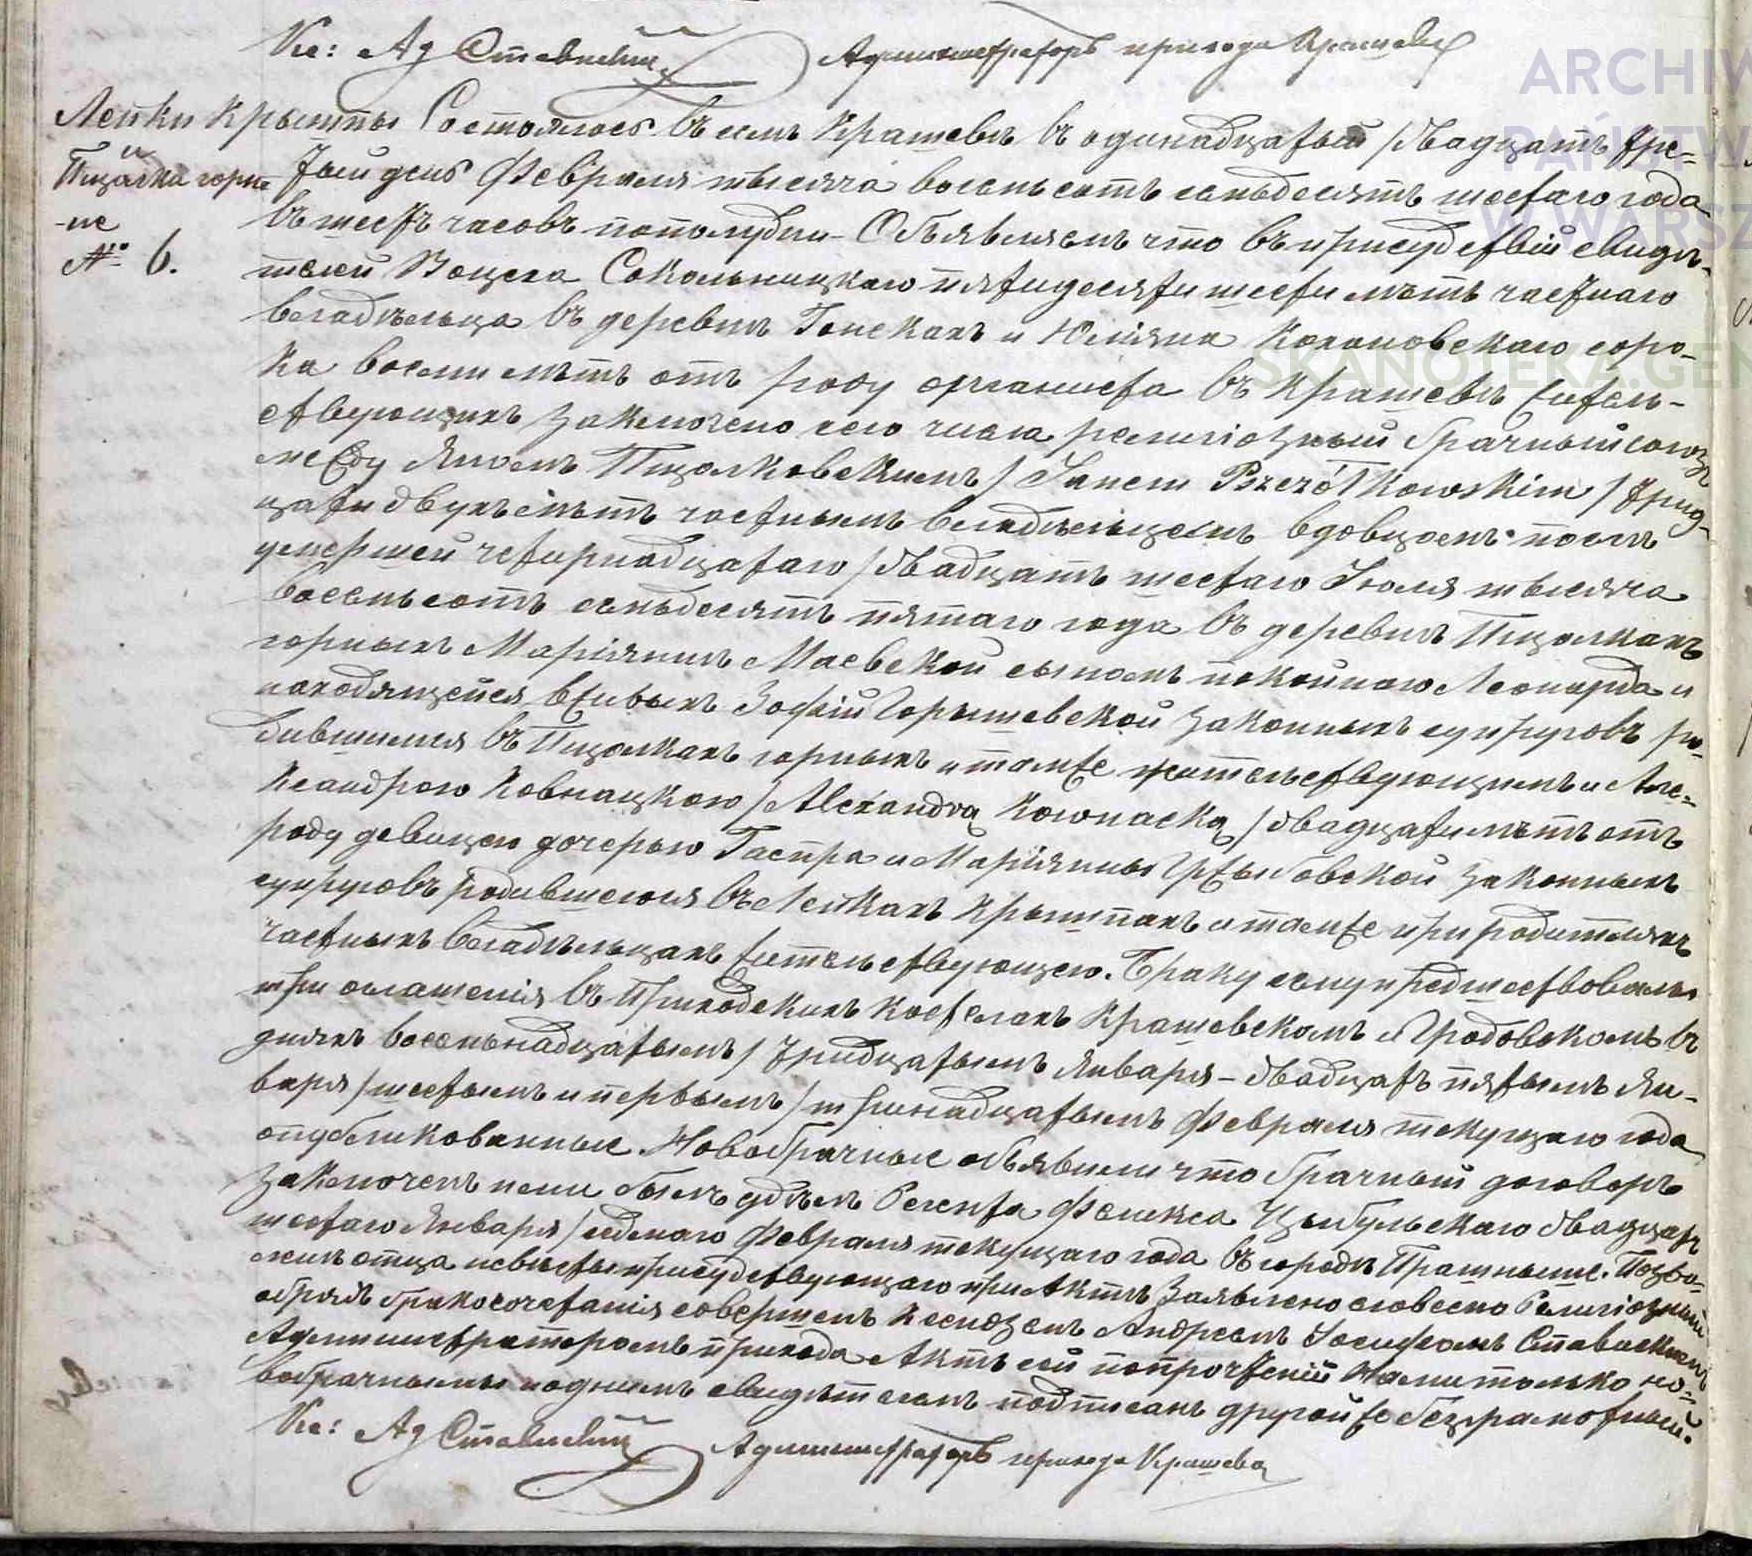 Кс: Ад Ставиский Администраторъ прихода Крашева
ARCHIWUM PAŃSTWOWE W WARSZAWIE
SKANOTEKA.GEN
Лейки Крыштпы
и
Пщолки горн-
-не
№ 6.
Состоялось въ селѣ Крашевѣ въ одинадцатый /двадцать тре-
тый день Февраля тысяча восемьсотъ семьдесятъ шестаго года
въ шесть часовъ пополудни. Объявляемъ что въ присудствіи свидѣ-
телей Вацека Сокольницкаго пятидесяти шести лѣтъ частнаго
владѣльца въ деревнѣ Гонскахъ и Юліяна Кохановскаго соро-
ка восми лѣтъ отъ роду органиста въ Крашевѣ жатель-
ствующихъ заключено сего числа религіозный брачный союзъ
между Яномъ Пщолковскимъ / Janem Pszczółkowskim / трид-
цати двухъ лѣтъ частнымъ владѣльцемъ вдовцомъ послѣ
умершей четырнадцатаго /двадцать шестаго Іюля тысяча
восемьсотъ семьдесятъ пятаго года въ деревнѣ Пщолкахъ
горныхъ Маріянны Маевской сыномъ покойнаго Леонарда и
находящейся вживыхъ Зофіи законныхъ супруговъ ро-
дившимся въ Пщолкахъ горныхъ и тамже жительствующимъ и Але-
ксандрою Ковнацкою / Alexandrą Kownacką / двадцати лѣтъ отъ
роду девицею дочерью Гаспра и Маріянны Гржыбовской законныхъ
супруговъ родившеюся въ Лейкахъ Крыштпахъ и тамже при родителяхъ
частныхъ владѣльцахъ жительствующею. Браку сему предшествовали
три оглашенія въ Приходскихъ костелахъ Крашевскомъ и Гродовскомъ въ
дняхъ восемьнадцатымъ / тридцатымъ Января – двадцать пятымъ Ян-
варя / шестымъ и первымъ / тринадцатымъ Февраля текущаго года
опубликованные. Новобрачные объявили что брачный договоръ
заключенъ ними былъ удѣлъ Регента Феликса Цыбульскаго двадцать
шестаго Января / седмаго Февраля текущаго года въ городѣ Прашнышѣ. Позво-
леніе отца невѣсты присудствующаго при Актѣ заявлено словесно Религіозный
обрядъ бракосочетанія совершенъ Ксендземъ Андреемъ Іосифомъ Ставискимъ
Администраторомъ прихода Актъ сей попрочтеніи Нами только но-
вобрачными и однимъ свидѣтелемъ подписанъ другой же безграмотный.
Кс: Ад Ставиский Администраторъ прихода Крашева